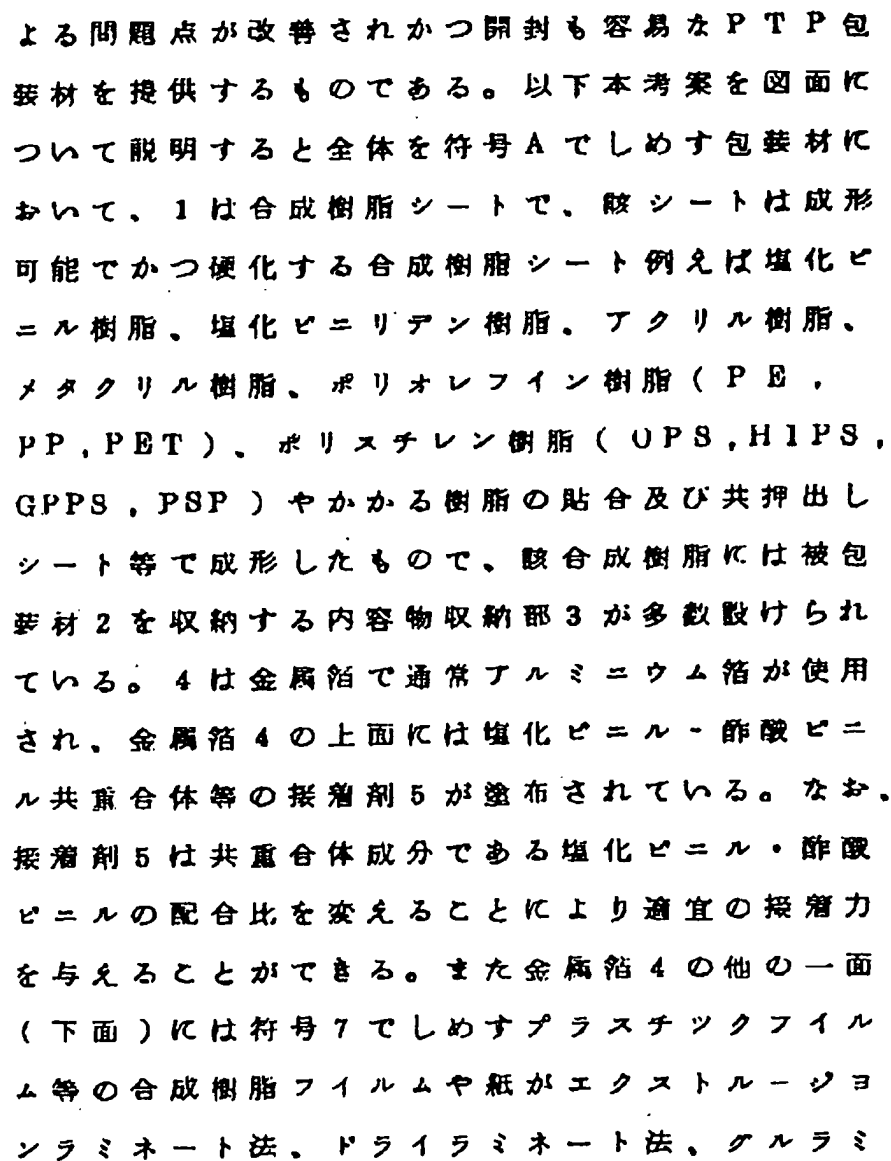 よる問題点が改善されかつ開封も容易なPTP包
装材を提供するものである。以下本考案を図面に
ついて説明すると全体を符号Aでしめす包装材に
おいて、1は合成樹脂シートで、該シートは成形
可能でかつ硬化する合成樹脂シート例えば塩化ビ
ニル樹脂、塩化ビニリデン樹脂、アクリル樹脂、
メタクリル樹脂、ポリオレフイン樹脂(PE,
PP,PET)、ポリスチレン樹脂(OPS,HIPS,
GPPS,PSP)やかかる樹脂の貼合及び共押出し
シート等で成形したもので、該合成樹脂には被包
装材2を収納する内容物収納部3が多数設けられ
ている。4は金属箔で通常アルミニウム箔が使用
され、金属箔4の上面には塩化ビニル-酢酸ビニ
ル共重合体等の接着剤5が塗布されている。なお、
接着剤5は共重合体成分である塩化ビニル・酢酸
ビニルの配合比を変えることにより適宜の接着力
を与えることができる。また金属箔4の他の一面
(下面)には符号7でしめすプラスチツクフイル
ム等の合成樹脂フイルムや紙がエクストルージヨ
ンラミネート法、ドライラミネート法、グルラミ